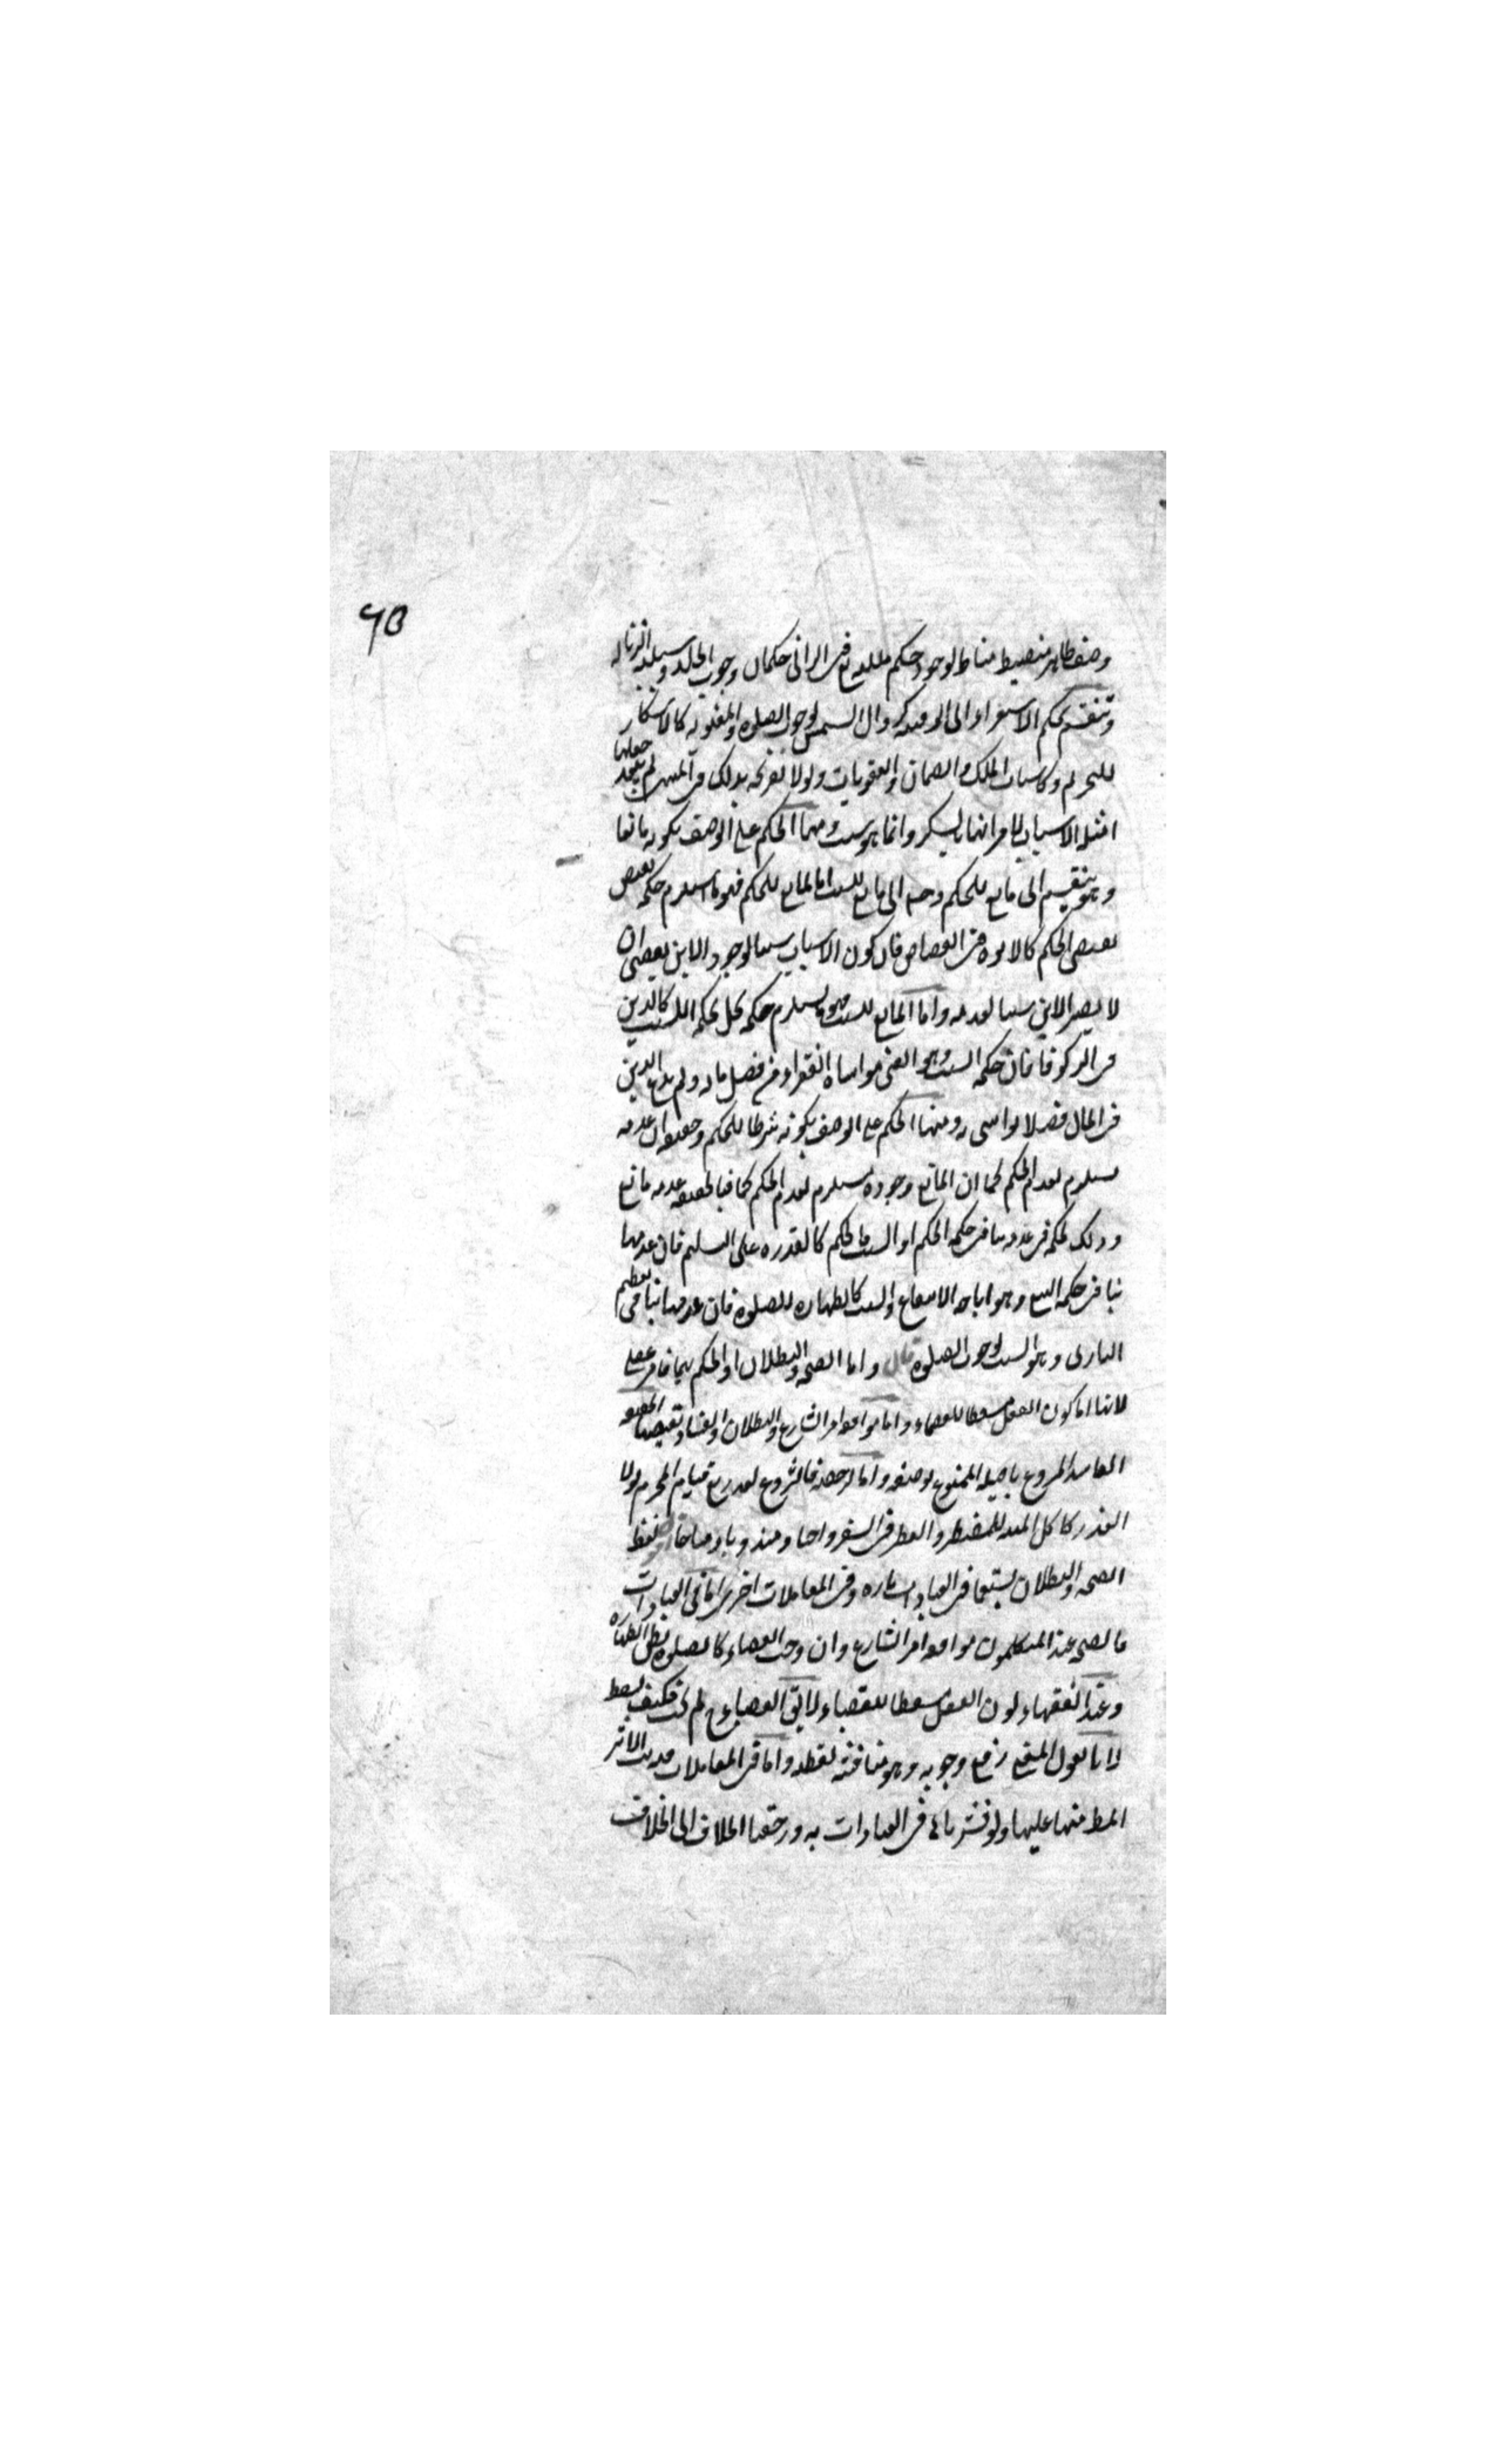 ٦٥
وصف ظاهر منضبط مناط لوجود حكم فلله تع فى الزانى حكمان وجوب الجلد وسببية الزنا له
وتنقسم بحكم الاستقراء الى الوقتية كزوال الشمس لوجوب الصلوة والمعنوية كالاسكار
للتحريم وكاسباب الملك والضمان والعقوبات ولولا تصريحه بذلك فى المنتهى لم يبعد جعلها
امثلة الاسباب لما مر انها بالسكر وانما هو سبب ومنها الحكم على الوصف بكونه مانعا
وهو ينقسم الى مانع للحكم و الى مانع للسبب اما المانع للحكم فهو ما استلزم حكمة تقتضى
نقيض الحكم كالابوة فى القصاص فان كون الاب سببا لوجود الابن يقتضى ان
لا يصير الابن سببا لعدمه واما المانع للسبب فهو ما يستلزم حكمة تخل بحكمة السبب كالدين
فى الزكوة فان حكمة السبب وهو الغنى مواساة الفقراء من فضل ماله ولم يدع الدين
فى المال فضلا يواسى به ومنها الحكم على الوصف بكونه شرطا للحكم وحقيقته ان عدمه
مستلزم لعدم الحكم كما ان المانع وجوده مستلزم لعدم الحكم فبالحقيقة عدمه مانع
وذلك لحكمة فى عدمه تنافى حكمة الحكم او السبب فالحكم كالقدرة على التسليم فان عدمها
ينافى حكمة البيع وهو اباحة الانتفاع والسبب كالطهارة للصلوة فان عدمها ينافى تعظيم
البارى وهو السبب لوجوب الصلوة قال واما الصحة والبطلان او الحكم بهما فامر عقلى
لانها اما كون الفعل مسقطا للقضاء واما موافقة امر الشارع والبطلان والفساد نقيضها الحنفية
الفاسد المشروع باصله الممنوع بوصفه واما الرخصة فالمشروع لعذر مع قيام المحرم لولا
العذر كاكل الميتة للمضطر والفطر فى السفر واجبا ومندوبا ومباحا لفظ
الصحة والبطلان يستعمل فى العبادات تارة وفى المعاملات اخرى اما فى العبادات
فالصحة عند المتكلمين موافقة امر الشارع وان وجب القضاء كالصلوة بظن الطهارة
وعند الفقهاء كون الفعل مسقطا للقضاء لا يق القضاء لم يجب فكيف يسقط
لانا نقول المعنى رفع وجوبه وهو مناقشة لفظية واما فى المعاملات فترتب الاثر
المط منها عليها ولو فسرناها فى العبادات به ورجعنا الخلاف الى الخلاف